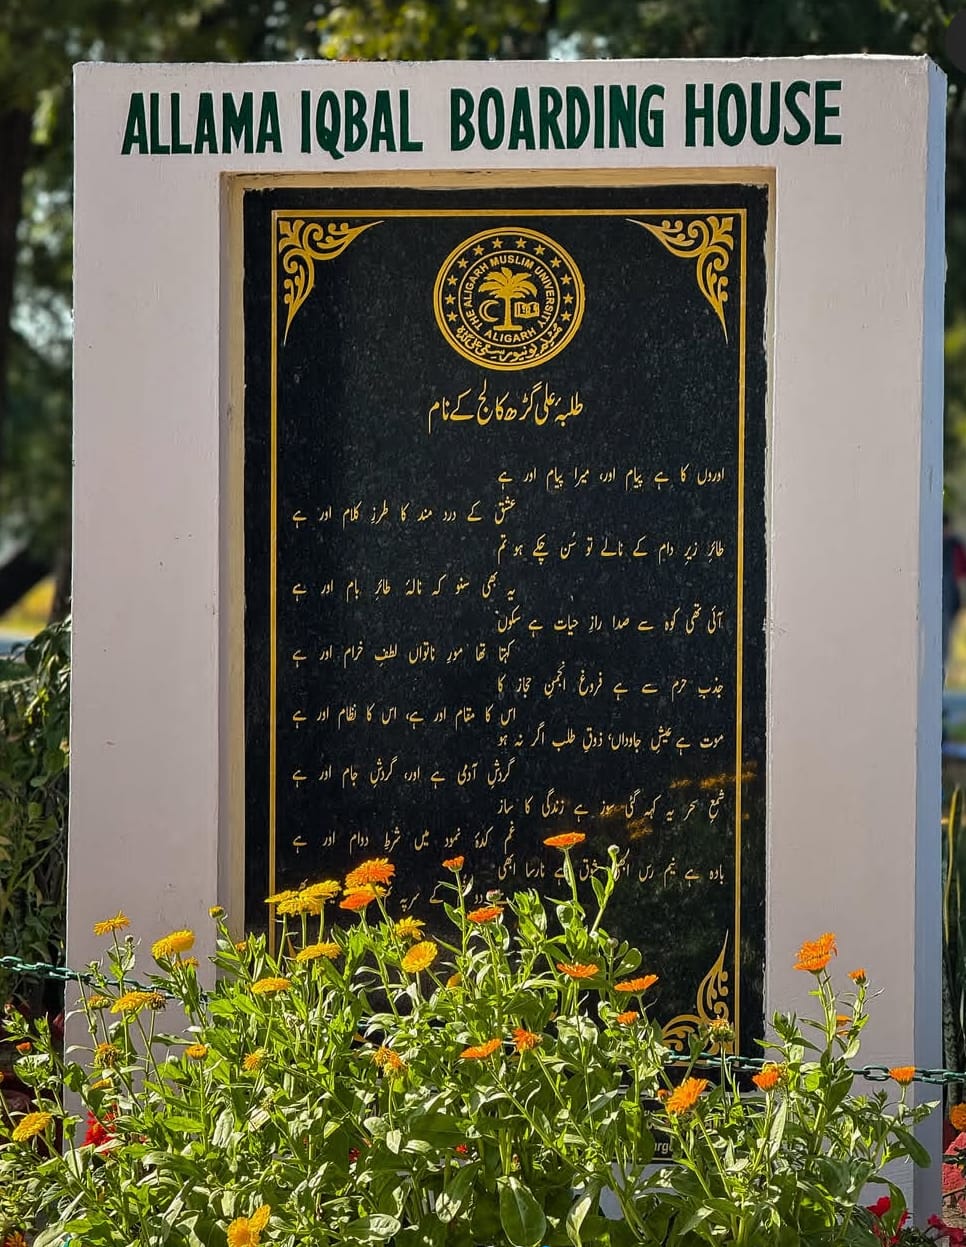 ALLAMA IQBAL BOARDING HOUSE
THE ALIGARH MUSLIM UNIVERSITY
ALIGARH
طلبۂ علی گڑھ کالج کے نام
اوروں کا ہے پیام اور، میرا پیام اور ہے
عشق کے درد مند کا طرزِ کلام اور ہے
طائرِ زیرِ دام کے نالے تو سُن چکے ہو تم
یہ بھی سنو کہ نالۂ طائرِ بام اور ہے
آئی تھی کوہ سے صدا رازِ حیات ہے سکوں
کہتا تھا مورِ ناتواں لطفِ خرام اور ہے
جذبِ حرم سے ہے فروغ انجمنِ حجاز کا
اس کا مقام اور ہے، اس کا نظام اور ہے
موت ہے عیشِ جاوداں، ذوقِ طلب اگر نہ ہو
گردشِ آدمی ہے اور، گردشِ جام اور ہے
شمعِ سحر یہ کہہ گئی سوز ہے زندگی کا ساز
غم کدۂ نمود میں شرطِ دوام اور ہے
بادہ ہے نیم رس ابھی ہے نارسا ابھی
کے سر پہ